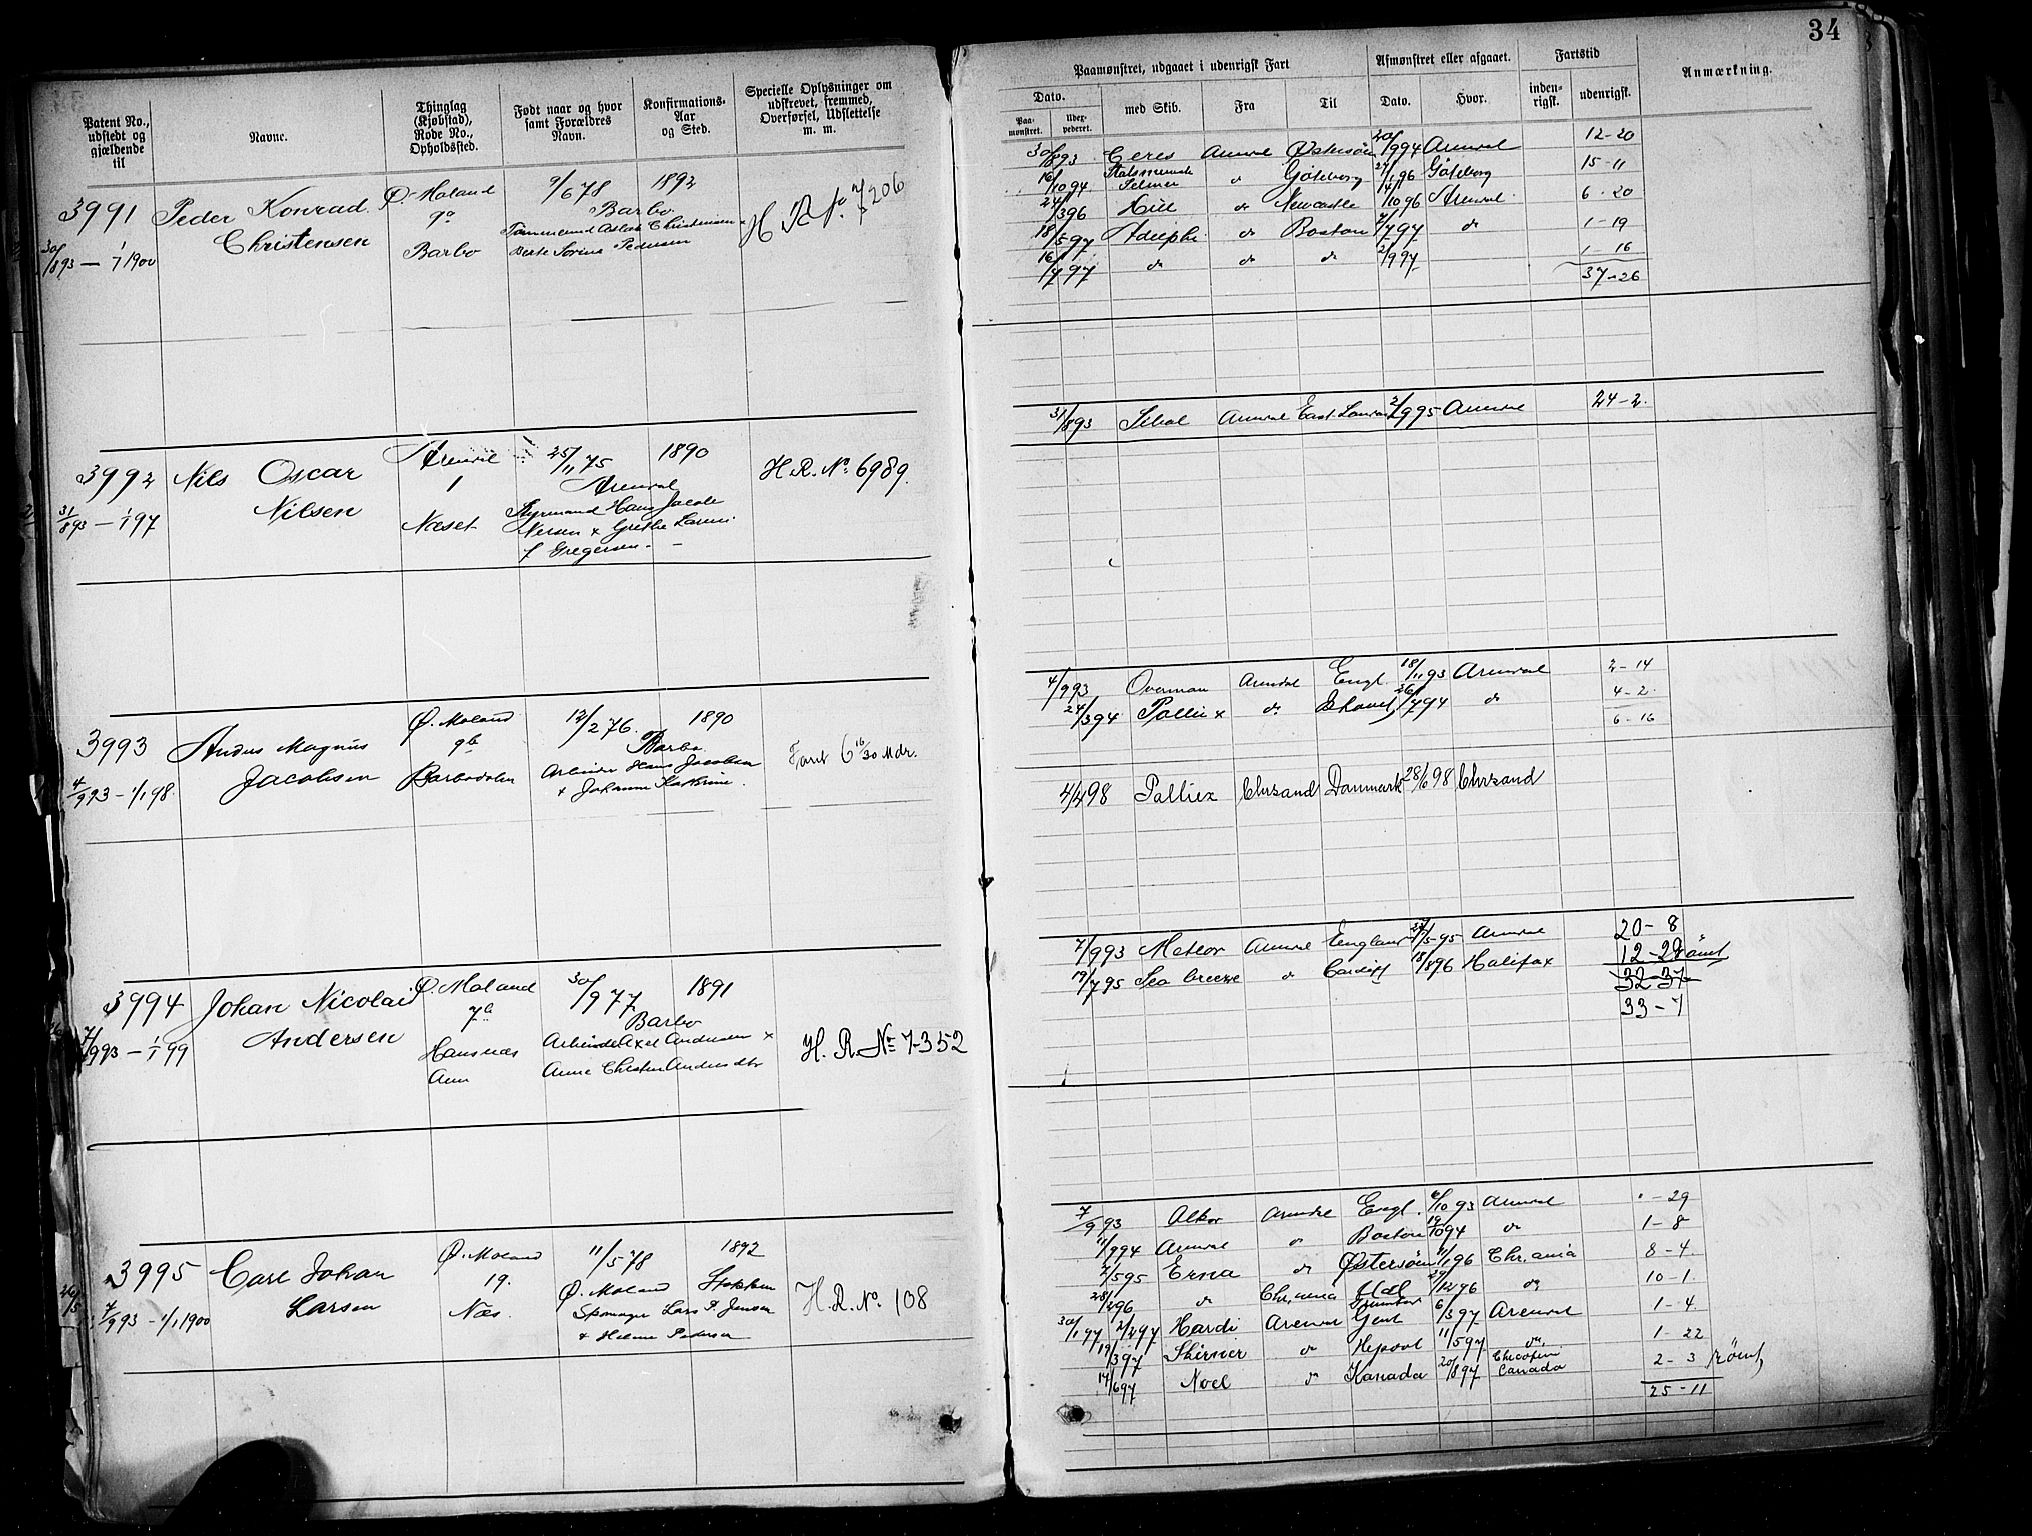 34
Patent No., udstedt og gjældende til
Navne.
Thinglag (Kjøbstad), Rode No., Opholdssted.
Født naar og hvor samt Forældres Navn.
Konfirmations-Aar og Sted.
Specielle Oplysninger om udskrevet, fremmed, Overførsel, Udslettelse m. m.
Paamønstret, udgaaet i udenrigsk Fart
Afmønstret eller afgaaet.
Fartstid
Anmærkning.
Dato.
med Skib.
Fra
Til
Dato.
Hvor.
inden-rigsk.
udenrigsk.
Paa-mønstret.
Udex-pederet.
3991 Peder Konrad Ø. Moland 9/6 78 1892 H R No. 7206
Christensen Barbo
30/8 93 — 1/1 1900 Barbo Berte Sorine Pedersen
30/8 93 Ceres Arendal Østersøen 20/9 94 Arendal 12-20
16/10 94 Selmer do Göteborg 27/1 96 Göteborg 15-11
24/3 96 do Newcastle 14/10 96 Arendal 6-20
18/5 97 Adelphi do Boston 7/7 97 do 1-19
16/7 97 do do do 2/9 97 1-16
37-26
3992 Nils Oscar Arendal 25/11 75 1890 H. R. No. 6989.
Nilsen 1 Arendal
31/8 93 — 1/1 97 Næset Styrmand Hans Jacob
Grethe
f Gregersen. —
31/8 93 Arendal East London 2/9 95 Arendal 24-2.
3993 Anders Magnus Ø. Moland 12/2 76. 1890
Jacobsen 9b Barbo.
4/9 93 — 1/1 98. Barbodalen Arbeider Hans Jacobsen
+ Johanne Kathrine. Faret 6 16/30 Mdr.
4/9 93 Overman Arendal Engl. 18/11 93 Arendal 2-14
24/3 94 Pollux do 26/7 94 do 4-2.
6-16
4/4 98 Pollux Chrsand Danmark 28/6 98 Chrsand
3994 Johan Nicolai Ø. Moland 30/9 77 1891
Andersen 7b Barbo
7/9 93 — 1/1 99 Arbeider Axel Andersen +
Anne Andersdtr H. R. No 7352
7/9 93 Meteor Arendal England 5-95 Arendal 20-8
19/7 95 Sea breeze do Cardiff 18/8 96 Halifax 12-29 rømt
32-37
33-7
3995 Carl Johan Ø. Moland 11/5 78 1892
Larsen 19. Ø. Moland Stokken
7/9 93 — 1/1 1900 Næs. Lars P. Jensen
+ Helene Pedersen H. R. No. 108
7/9 93 Alkor Arendal Engl. 6/10 93 Arendal " - 29
11/9 94 Arendal do Boston 19/10 94 do 1-8
7/5 95 Erna do Østersøen 11/1 96 Chr.ania 8-4.
28/2 96 do Chr.ania 29/12 96 do 10-1.
30/1 97 2/2 97 Hardi Arendal Gent 6/3 97 Arendal 1-4.
19/3 97 Skirner do Hypool 11/5 97 do 1-22
14/6 97 Noel do Kanada 20/8 97 Canada 2-3 rømt,
25-11